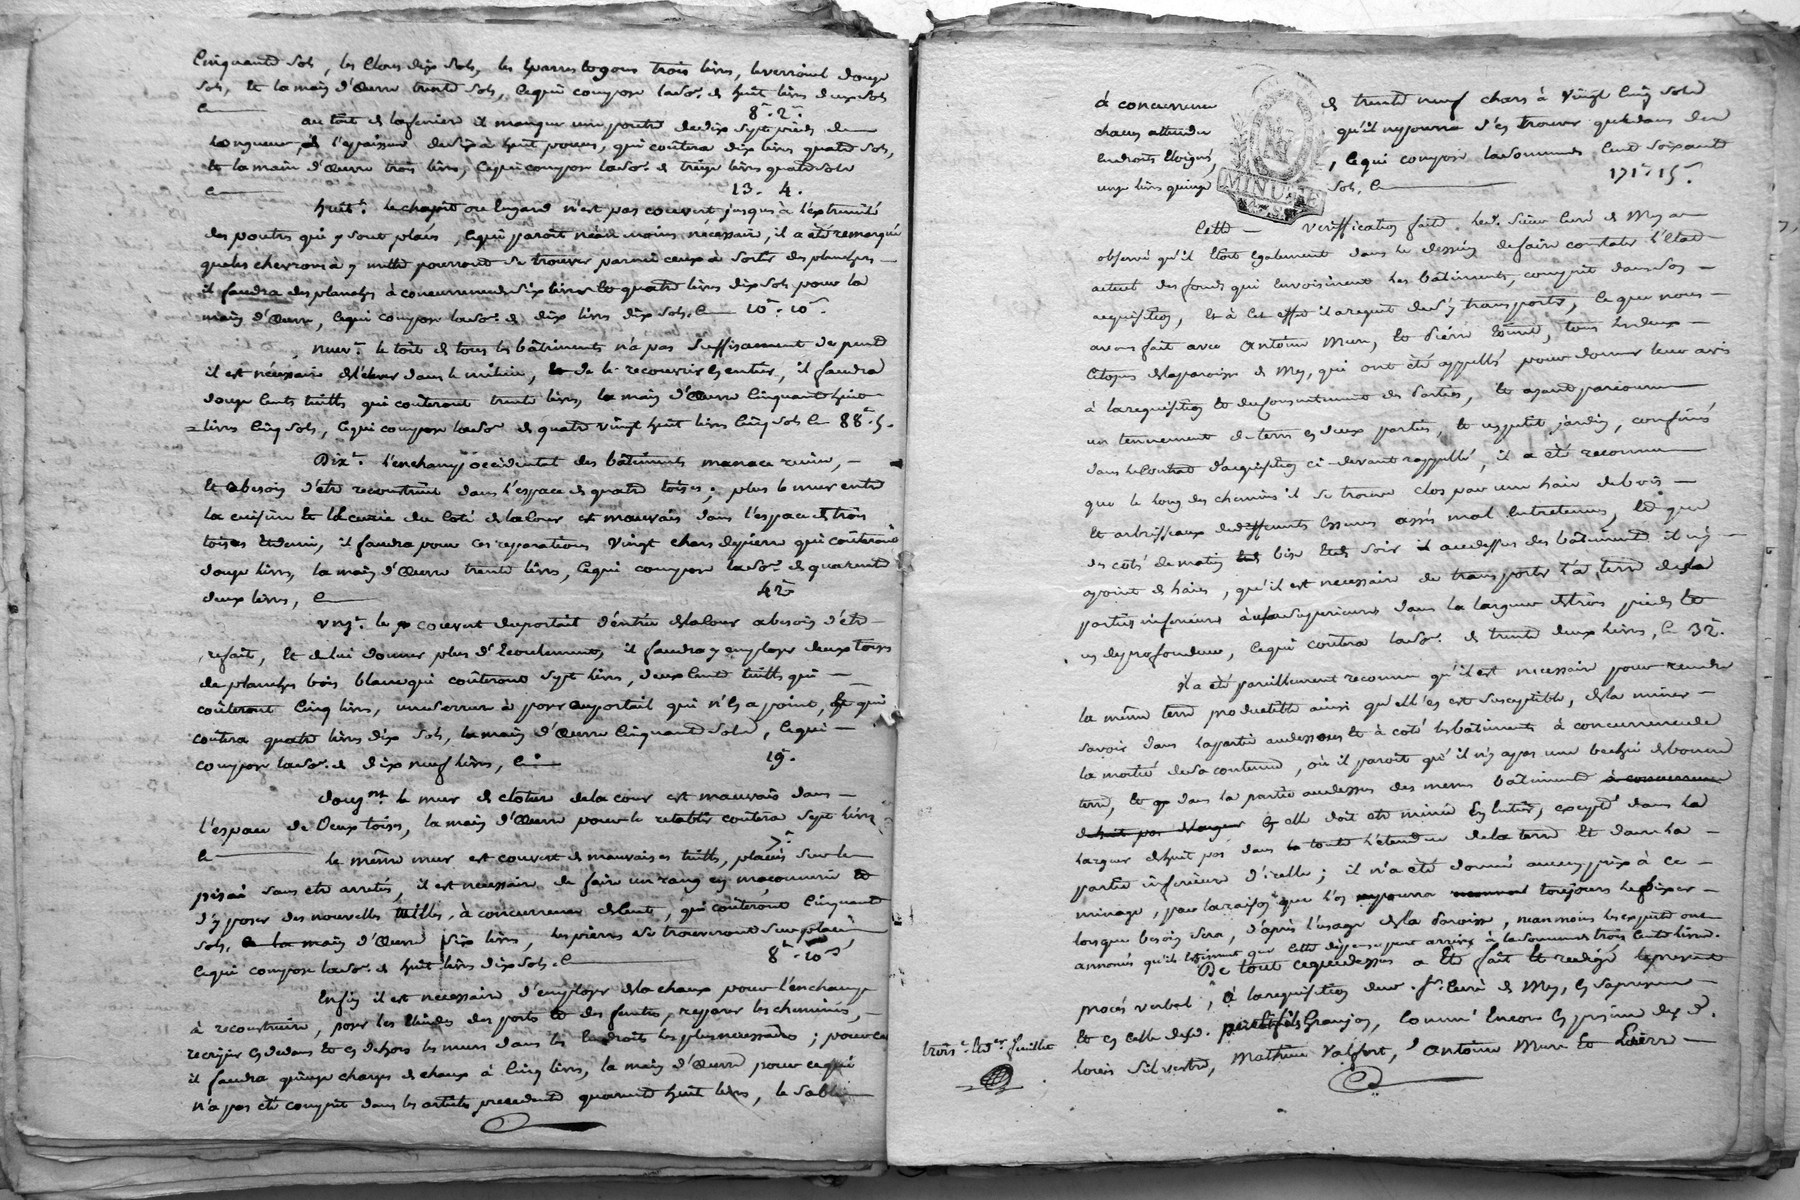 Cinquante sols, les clous dix sols, les eparres et gons trois livres, le verrouil douze
sols, et la main d'œuvre trente sols, ce qui compose la so.e de huit livres deux sols
Cy 8.tt 2.s
au toit de la feniere il manque une poutre de dix sept pieds de
longueur, et l'epaisseur de six à huit pouces, qui coûtera dix livres quatre sols,
et la main d'œuvre trois livres, ce qui compose la so.e de treize livres quatre sols
Cy 13. 4.
huit.t le chapit ou hugard n'est pas couvert jusques à l'extremité
des poutres qui y sont placés, ce qui paroit neanmoins necessaire, il a été remarqué
que les chevrons à y mettre pourront se trouver parmi ceux à sortir des planchers
il faudra des planches à concurrence de six livres et quatre livres dix sols pour la
main d'œuvre, ce qui compose la so.e de dix livres dix sols, Cy 10.tt 10.s
neuv.t le toit de tous les bâtiments n'a pas suffisament de pente
il est nécessaire de l'elever dans le milieu, et de le recouvrir en entier, il faudra
douze cents tuilles qui coûteront trente livres, la main d'œuvre cinquante huit
livres cinq sols, ce qui compose la so.e de quatre vingt huit livres cinq sols Cy 88.tt 5.
Dix.t l'enchamp occidental des bâtiments menace ruine,
et a besoin d'etre reconstruit dans l'espace de quatre toises; plus le mur entre
la cuisine et l'écurie du coté de la cour est mauvais dans l'espace de trois
toises et demi, il faudra pour ces reparations vingt chars de pierre qui coûteront
douze livres, la main d'œuvre trente livres, ce qui compose la so.e de quarente
deux livres, Cy 42.tt
unz.t le couvert du portail d'entrée de la cour a besoin d'etre
refait, et de lui donner plus d'ecoulement, il faudra y employer deux toises
de planches bois blanc qui coûteront sept livres, deux cents tuilles qui
coûteront cinq livres, une serrure à poser au portail qui n'en a point, qui
coûtera quatre livres dix sols, la main d'œuvre cinquante sols, ce qui
compose la so.e de dix neuf livres, Cy 19.
douz.mt le mur de cloture de la cour est mauvais dans
l'espace de deux toises, la main d'œuvre pour le retablir coûtera sept livres
Cy 7.tt
le même mur est couvert de mauvaises tuilles, placées sur le
pisai sans etre arretés, il est necessaire de faire un rang en maçonnerie et
d'y poser des nouvelles tuilles, à concurrence de cent, qui coûteront cinquante
sols, la main d'œuvre six livres, les pierres se trouveront sur place
ce qui compose la so.e de huit livres dix sols. Cy 8.tt 10.s
Enfin il est necessaire d'employer de la chaux pour l'enchamp
à reconstruire, poser les etuides des portes et des fenetres, reparer les cheminés,
recrepir en dedans et en dehors les murs dans les endroits les plus necessaires; pour ce
il faudra quinze charges de chaux à cinq livres, la main d'œuvre pour ce qui
n'a pas été compris dans les articles precedents quarante huit livres, le sable
à concurrence de trente neuf chars à vingt cinq sols
chacun attendu qu'il ne pourra s'en trouver que dans des
endroits eloignés, ce qui compose la somme de cent soixante
unze livres quinze sols, Cy 171.tt 15.s
MINUTE
Cette verification faite led. sieur Curé de Mey a
observé qu'il étoit egalement dans le dessein de faire constater l'etat
actuel des fonds qui envoisinent les bâtiments, compris dans son
acquisition, et à cet effet il a requit de s'y transporter, ce que nous
avons fait avec Antoine Mure, et Pierre, tous les deux
citoyens de la paroisse de Mey, qui ont été appellés pour donner leur avis
à la requisition et du consentement des parties, et ayant parcouru
un tennement de terre en deux parties, et un petit jardin, confinés
dans le contrat d'acquisition ci-devant rappellé, il a été reconnu
que le long des chemins il se trouve clos par une haie de bois
et arbrisseaux de differents essences assés mal entretenus, et que
des cotés de matin bise et soir au dessus des bâtiments il n'y
a point de haies, qu'il est necessaire de transporter la terre de la
partie inferieure à la superieure dans la largeur de trois pieds et
un de profondeur, ce qui coûtera la so.e de trente deux livres, Cy 32.tt
il a été pareillement reconnu qu'il est necessaire pour rendre
la même terre productible ainsi qu'elle en est susceptible, de la miner
savoir dans la partie au dessous et à coté les bâtiments à concurrence de
la moitié de sa contenue, où il paroit qu'il n'y a pas une bechée de bonne
terre, et dans la partie au dessus des memes bâtiments à concurrence
de huit pas de largeur elle doit etre minée en entier, excepté dans la
largeur de huit pas dans toute l'étendue de la terre et dans la
partie inferieure d'icelle; il n'a été donné aucun prix à ce
minage, par la raison que l'on pourra toujours le fixer
lorsque besoin sera, d'après l'usage de la Paroisse, neanmoins les experts ont
annoncé qu'ils estiment que cette depense peut arriver à la somme de trois cents livres.
De tout ce que dessus a été fait et redigé le present
procés verbal, à la requisition dud. s.r Curé de Mey, en sa presence
et en celle desd. Granjon, comme encore en presence desd.
louis Silvestre, Mathieu Valfort, Antoine Mure et Pierre
trois.e et d.er feuillet